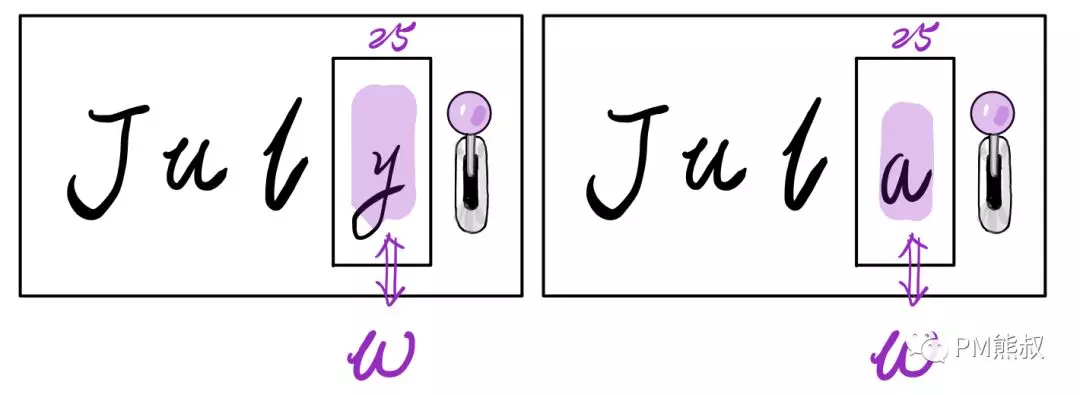 25
July
w
25
Jula
w
PM熊叔